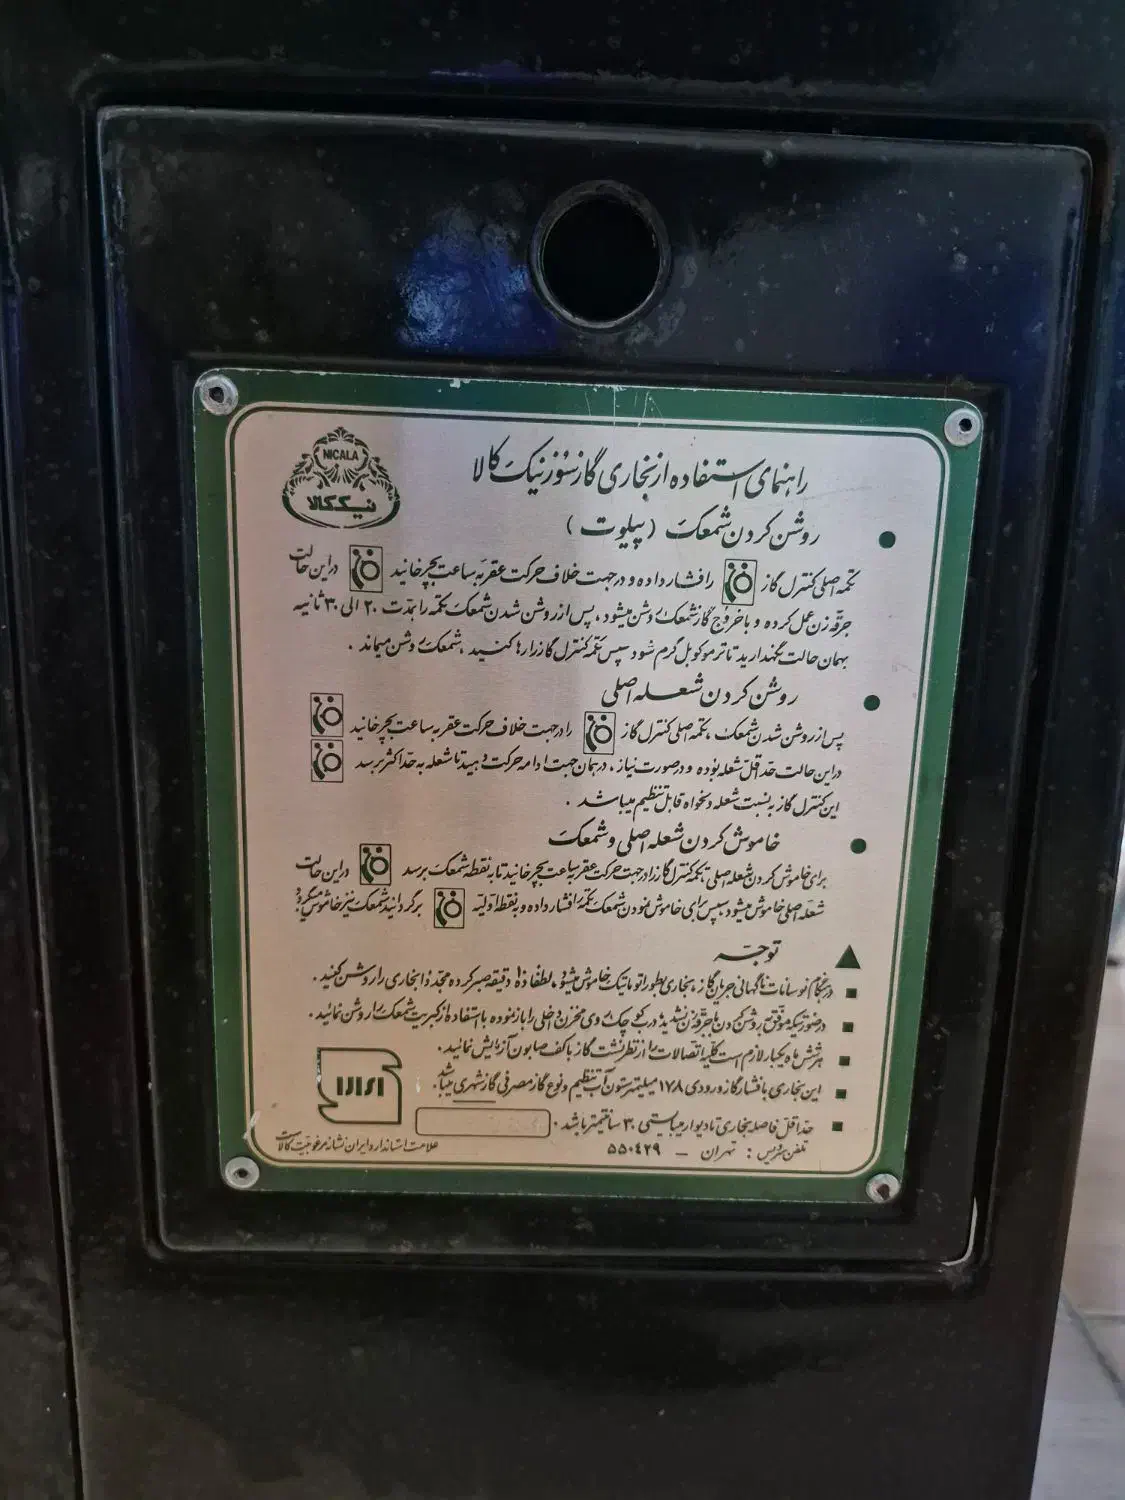 NICALA
نیک‌کالا
راهنمای استفاده از بخاری گازسوز نیک کالا
● روشن کردن شمعک (پیلوت)
تکمه اصلی کنترل گاز را فشار داده و در جهت خلاف حرکت عقربه ساعت بچرخانید در این حالت
جرقه زن عمل کرده و با خروج گاز شمعک روشن میشود، پس از روشن شدن شمعک تکمه را بمدت ۲۰ الی ۳۰ ثانیه
بهمان حالت نگهدارید تا ترموکوپل گرم شود سپس تکمه کنترل گاز را رها کنید، شمعک روشن میماند.
● روشن کردن شعله اصلی
پس از روشن شدن شمعک، تکمه اصلی کنترل گاز را در جهت خلاف حرکت عقربه ساعت بچرخانید
در این حالت حداقل شعله بوده و در صورت نیاز، در همان جهت ادامه حرکت دهید تا شعله به حداکثر برسد
این کنترل گاز به نسبت شعله دلخواه قابل تنظیم میباشد.
● خاموش کردن شعله اصلی و شمعک
برای خاموش کردن شعله اصلی، تکمه کنترل گاز را در جهت حرکت عقربه ساعت بچرخانید تا به نقطه شمعک برسد در این حالت
شعله اصلی خاموش میشود سپس برای خاموش نمودن شمعک تکمه را فشار داده و به نقطه اولیه برگردانید شمعک نیز خاموش میگردد
▲ توجه
■ در هنگام نوسانات ناگهانی جریان گاز، بخاری بطور اتوماتیک خاموش میشود، لطفاً ۱۵ دقیقه صبر کرده مجدداً بخاری را روشن کنید.
■ در صورتیکه موفق به روشن کردن با جرقه زن نشدید درب کوچک روی مخزن داخلی را باز نموده با استفاده از کبریت شمعک را روشن نمائید.
■ هر شش ماه یکبار لازم است کلیه اتصالات را از نظر نشت گاز با کف صابون آزمایش نمائید.
■ این بخاری با فشار گاز ورودی ۱۷۸ میلیمتر ستون آب تنظیم و نوع گاز مصرفی گاز شهری میباشد.
■ حداقل فاصله بخاری تا دیوار میبایستی ۳۰ سانتیمتر باشد.
تلفن سرویس: تهران – ۵۵۰۴۲۹
علامت استاندارد ایران نشانه مرغوبیت کالاست